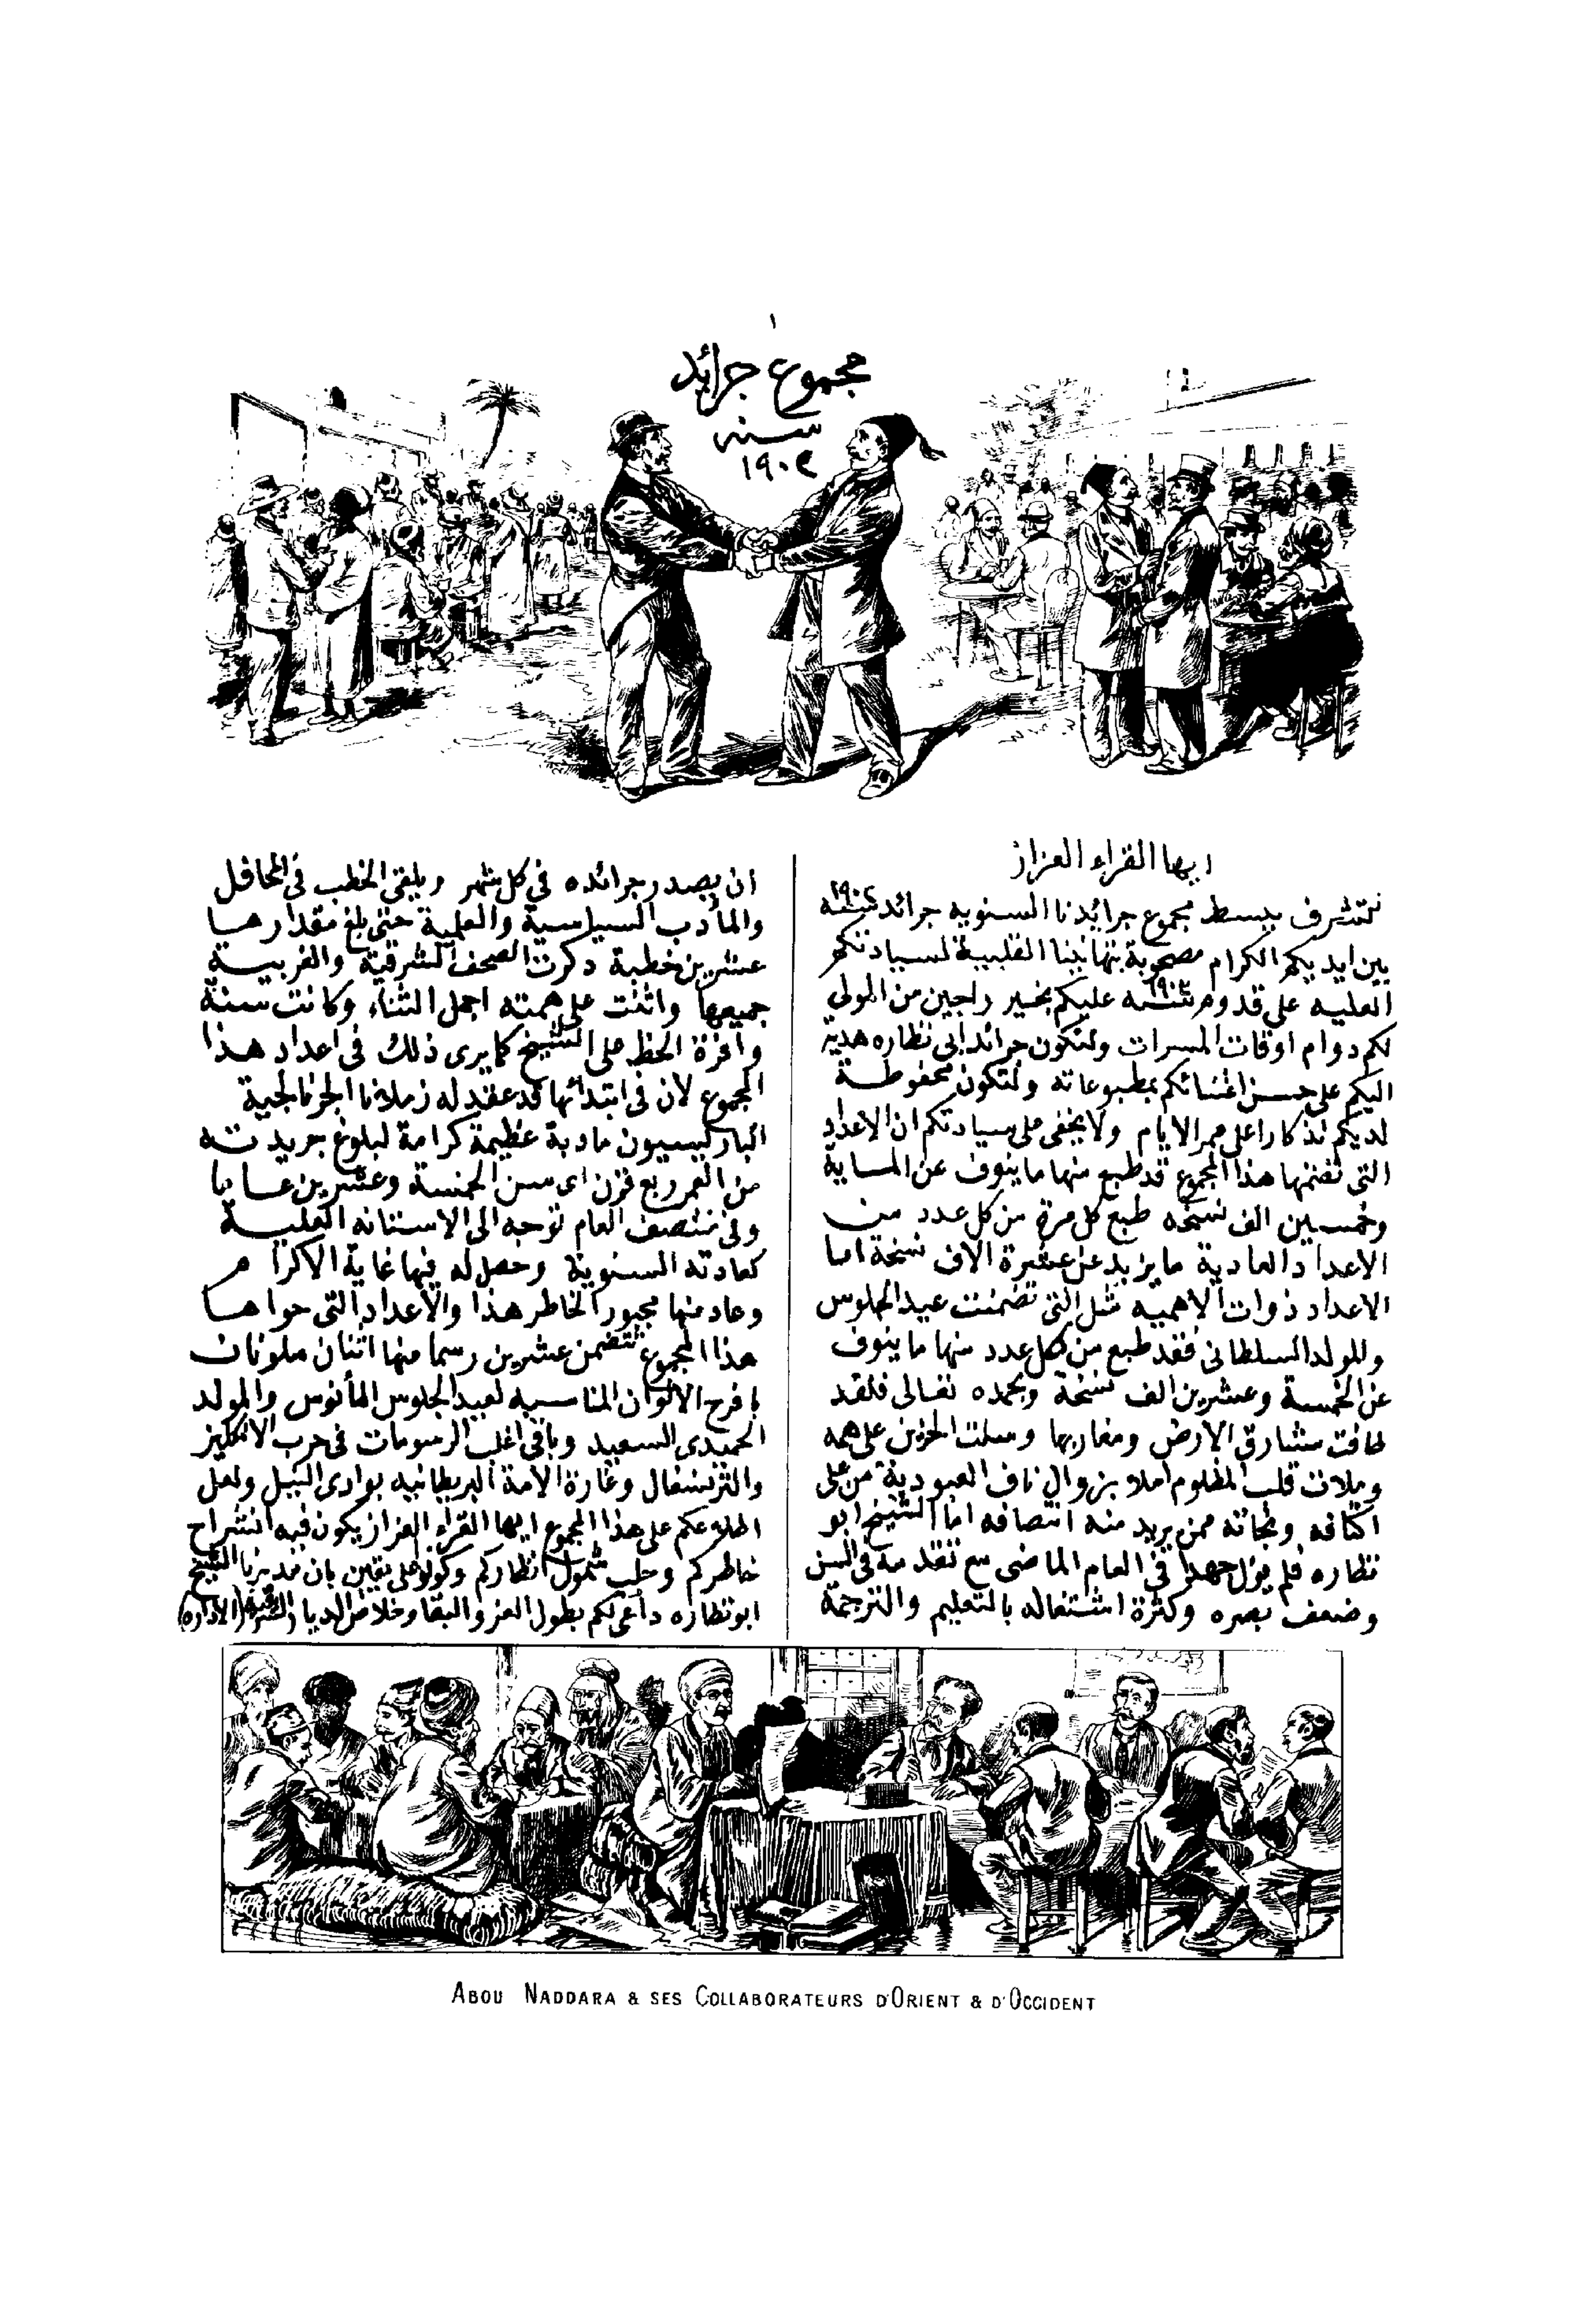 ١
مجموع جرائد
سنه
١٩٠٢
ايها القراء العزاز
نتشرف ببسط مجموع جرائدنا السنويه جرائد سنة ١٩٠٢
بين ايديكم الكرام مصحوبة بتهانينا القلبية لسيادتكم
العليه على قدوم سنة عليكم بخير راجين من المولى
لكم دوام اوقات المسرات ولتكون جرائد ابى نظاره هدية
اليكم على حسن اعتنائكم بمطبوعاته ولتكون محفوظة
لديكم تذكارا على ممر الايام ولا يخفى على سيادتكم ان الاعداد
التى تضمنها هذا المجموع قد طبع منها ما ينوف عن المساية
وخمسين الف نسخه طبع كل مرة من كل عدد من
الاعداد العادية ما يزيد عن عشرة الاف نسخة اما
الاعداد ذوات الاهميه مثل التى تضمنت عيد الجلوس
والمولد السلطانى فقد طبع من كل عدد منها ما ينوف
عن الخمسة وعشرين الف نسخة وبحمده تعالى فلقد
طافت مشارق الارض ومغاربها وسلت الحزين على همه
وملات قلب المظلوم املا بزوال ناف العبودية من على
اكتافه ونجاته ممن يريد منه انتصافه اما الشيخ ابو
نظاره فلم يزل جهدا فى العام الماضى مع تقدمه فى السن
وضعف بصره وكثرة اشتغاله بالتعليم والترجمة
ان يصدر جرائده فى كل شهر ويلقى الخطب فى المحافل
والمآدب السياسية والعلمية حتى بلغ مقدارها
عشرين خطبة ذكرت الصحف الشرقية والغربية
جميعها واثنت على همته اجمل الثناء وكانت سنة
وافرة الحظ على الشيخ كما يرى ذلك فى اعداد هذا
المجموع لان فى ابتدائها قد عقد له زملائنا الجرنالجية
الباريسيون مادبة عظيمة كرامة لبلوغ جريدته
من العمر ربع قرن اى سن الخمسة وعشرين عاما
وفى منتصف العام توجه الى الاستانه العلية
كعادته السنوية وحصل له فيها غاية الاكرام
وعاد منها مجبور الخاطر هذا والاعداد التى حواها
هذا المجموع تتضمن عشرين رسما منها اثنان ملونان
بافرح الالوان المناسبه لعيد الجلوس المأنوس والمولد
الحميدى السعيد وباقى اغلب الرسومات فى حرب الانكليز
والترنسفال وغارة الامة البريطانيه بوادى النيل ولعل
اطلاعكم على هذا المجموع ايها القراء العزاز يكون فيه انشراح
خاطركم وجلب شمول انظاركم وكونوا على يقين بان مديرنا الشيخ
ابو نظاره داعى لكم بطول العز والبقا وخلاص الديار (الادارة)
ABOU NADDARA & SES COLLABORATEURS D'ORIENT & D'OCCIDENT